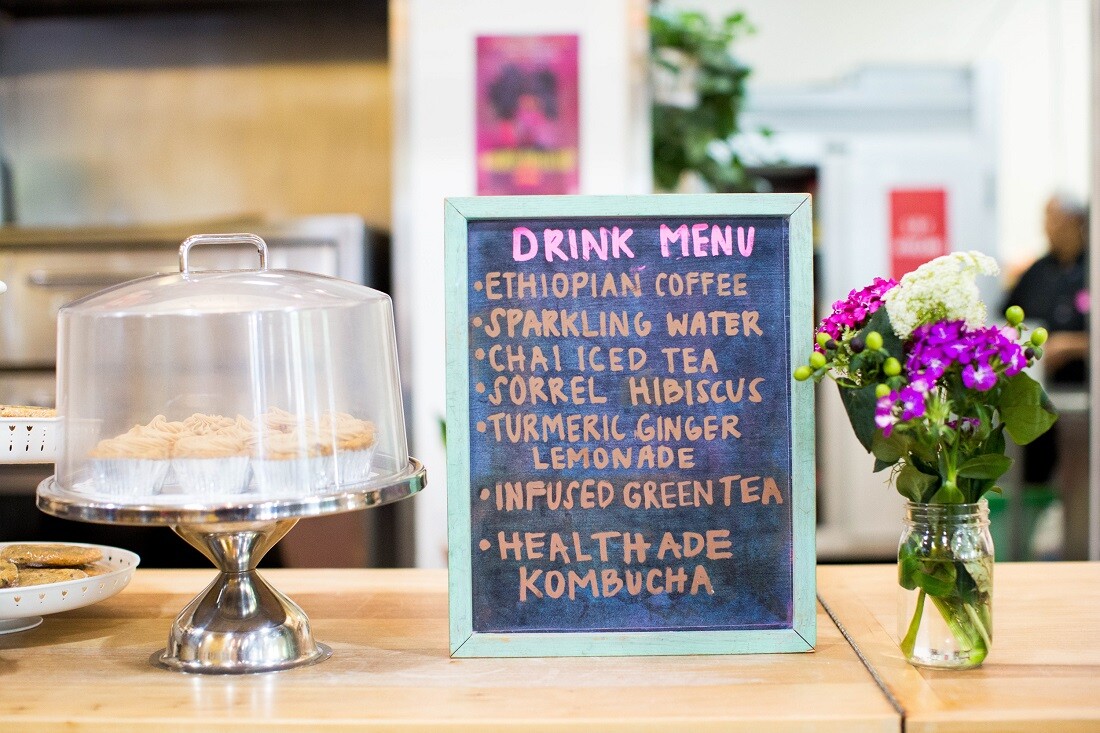 DRINK MENU
• ETHIOPIAN COFFEE
• SPARKLING WATER
• CHAI ICED TEA
• SORREL HIBISCUS
• TURMERIC GINGER
LEMONADE
• INFUSED GREEN TEA
• HEALTHADE
KOMBUCHA